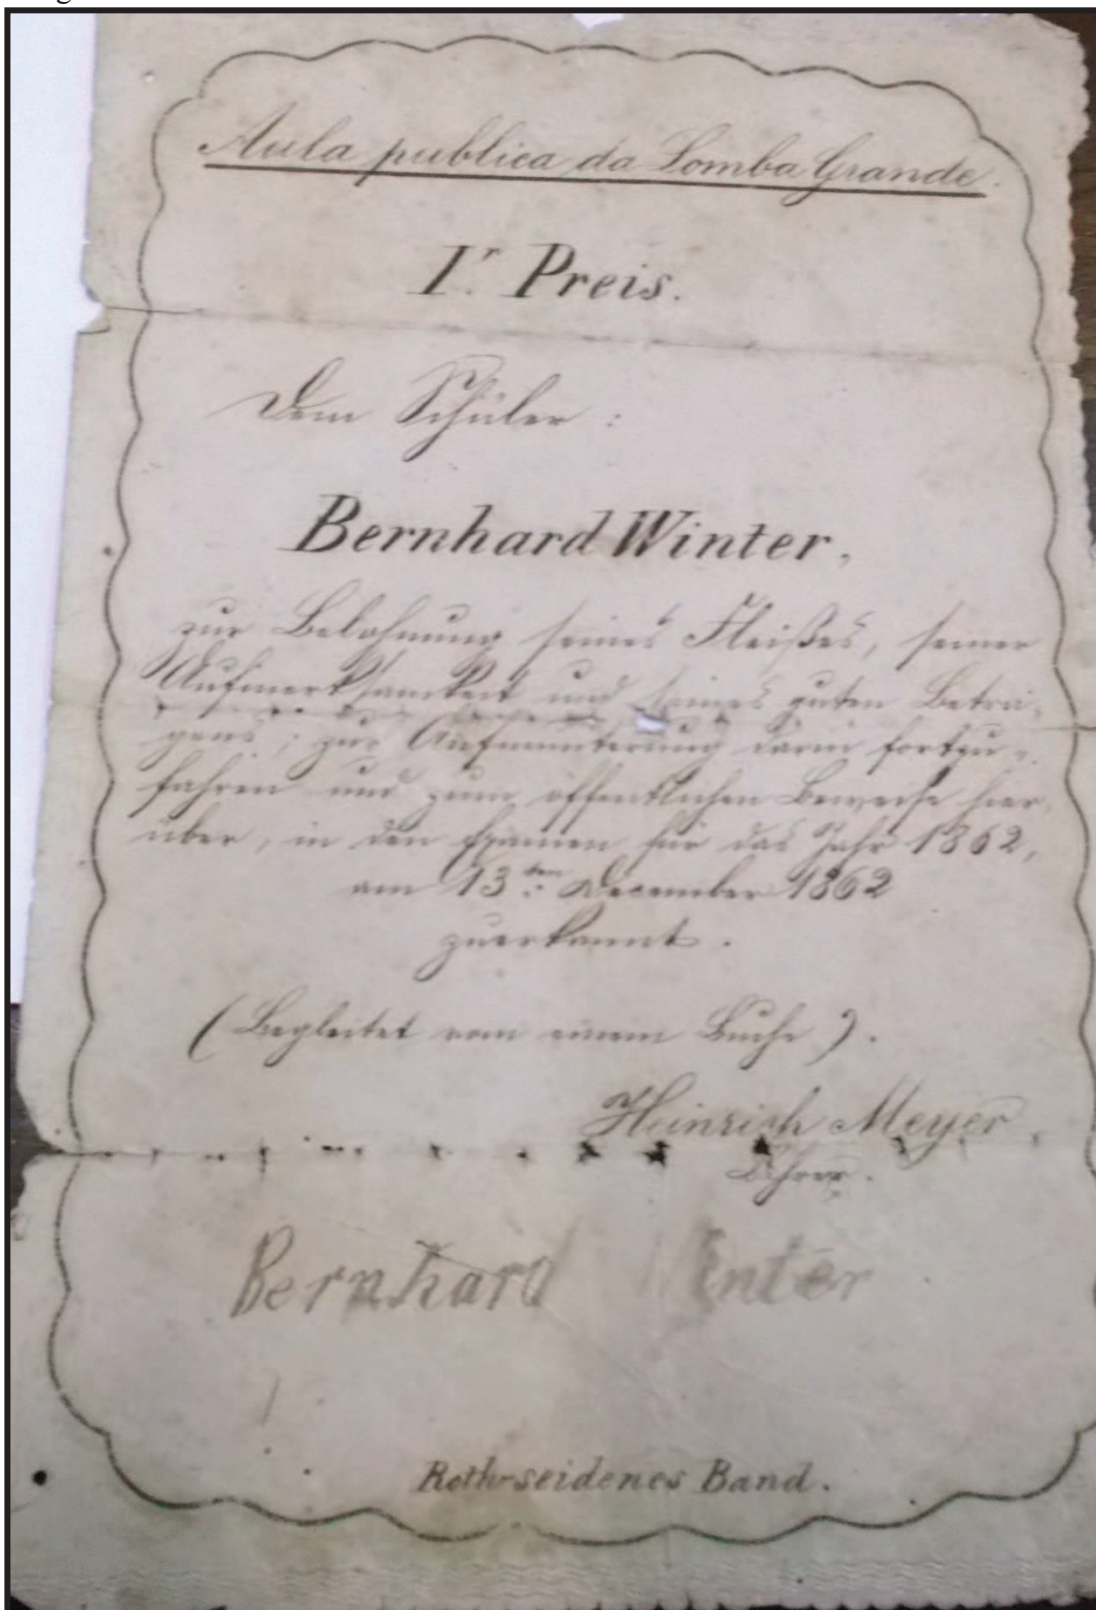 Aula publica da Lomba Grande.
Ir. Preis.
Dem Schüler :
Bernhard Winter,
zur Belohnung seines Fleißes, seiner
Aufmerksamkeit und seines guten Betra-
gens ; zur Aufmunterung darin fortzu-
fahren und zum öffentlichen Beweise hier-
über, in den Examen für das Jahr 1862,
am 13ten December 1862
zuerkannt.
(Begleitet vom einem Buche).
Heinrich Meyer,
Lehrer.
Bernhard Winter
Roth-seidenes Band.